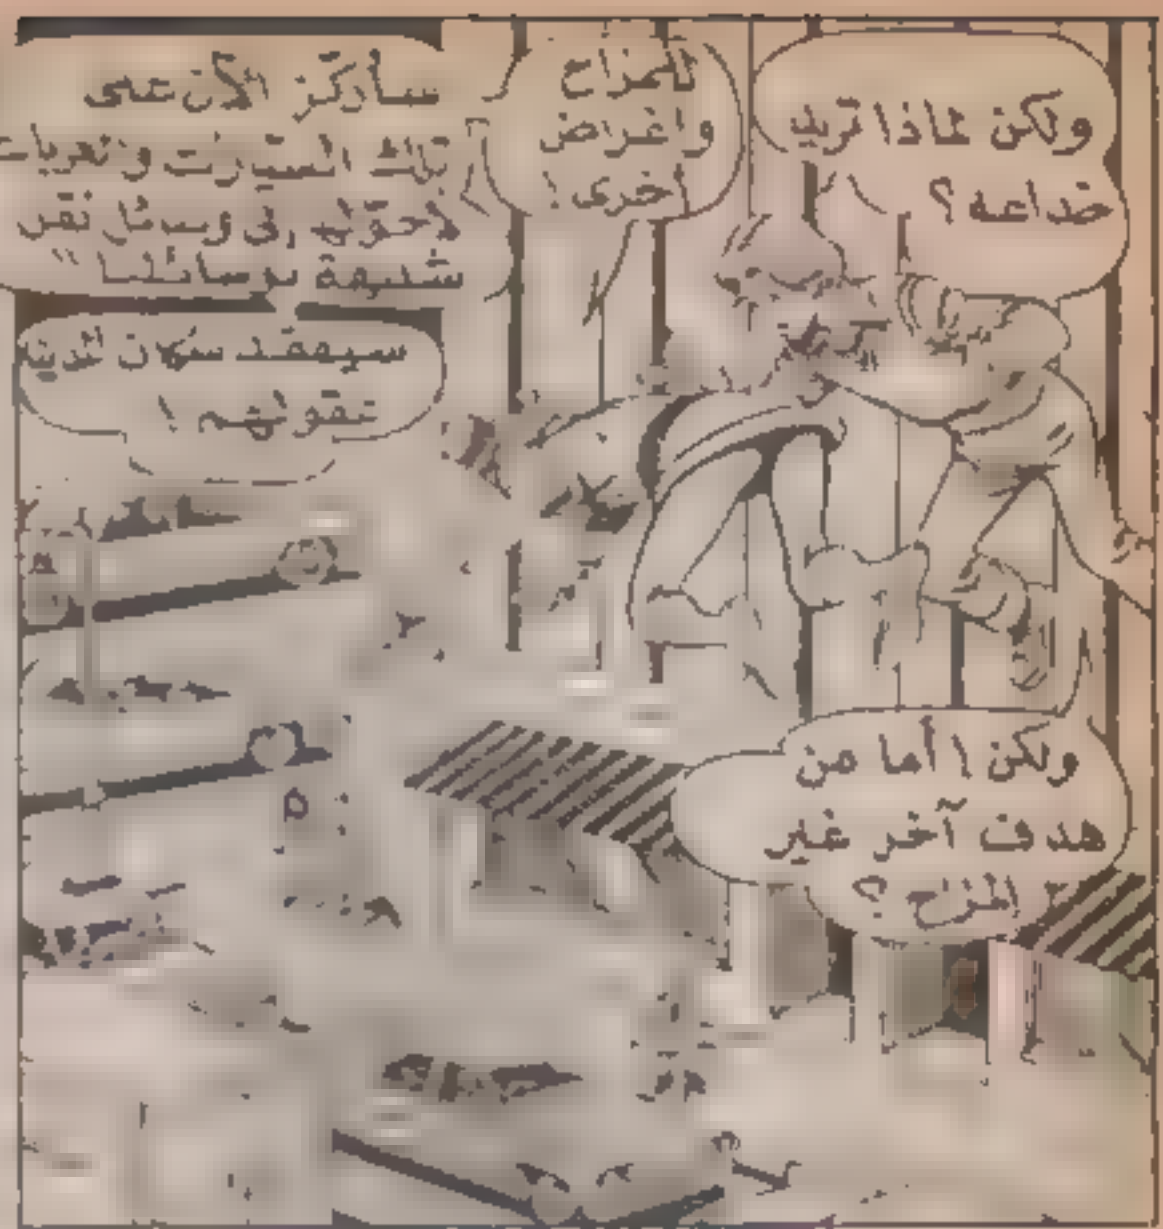 ولكن لماذا تريد
خداعه ؟
للمزاح
واغراض
أخرى !
سأركز الآن على
تلك السيارات والعربات
لأحولها إلى وسائل نقل
شبيهة بوسائلنا "
سيفقد سكان المدينة
عقولهم !
ولكن ! أما من
هدف آخر غير
المزاح ؟